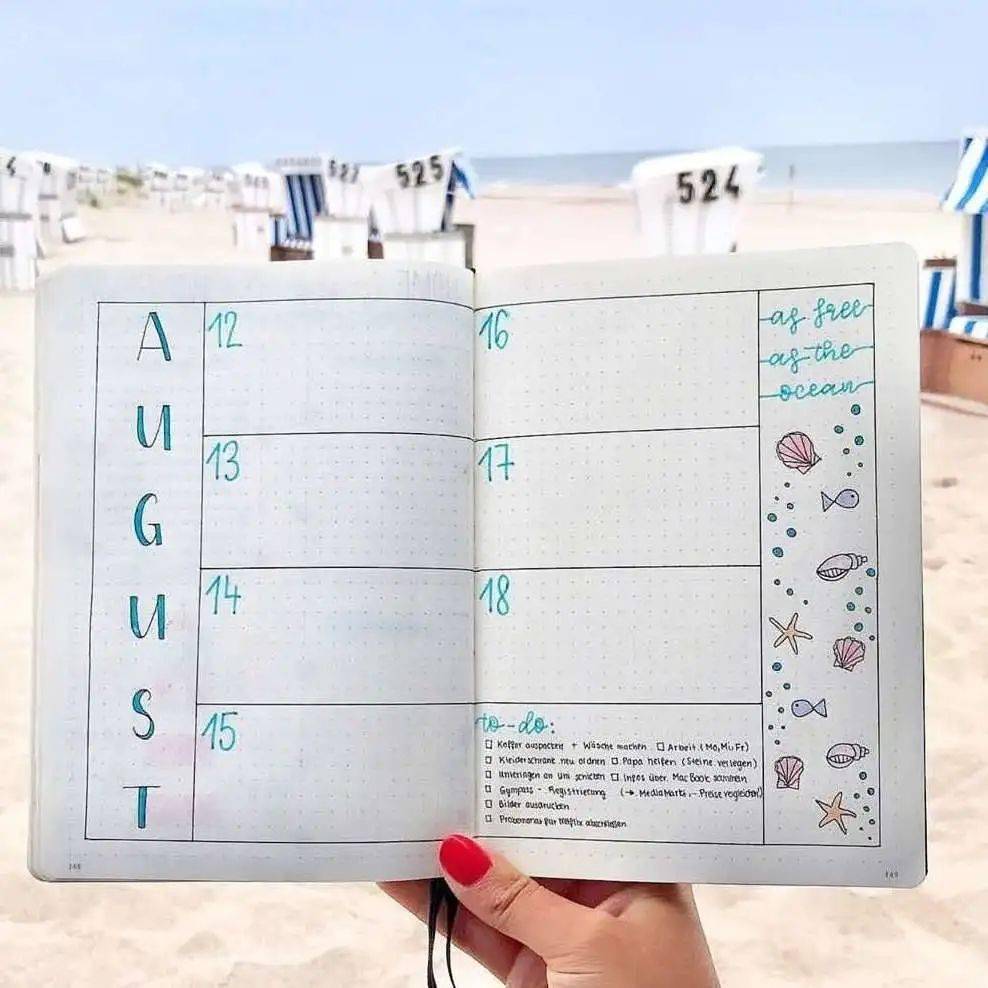 525
524
AUGUST
12
13
14
15
16
17
18
as free
as the
ocean
to-do:
□ Koffer auspacken + Wäsche machen □ Arbeit (Mo, Mi, Fr)
□ Kleiderschrank neu ordnen □ Papa helfen (Steine verlegen)
□ Unterlagen an Uni schicken □ Infos über MacBook sammeln
□ Gympass - Registrierung (→ MediaMarkt, - Preise vergleichen)
□ Bilder ausdrucken
□ Probemonat für Netflix abschließen
148
149